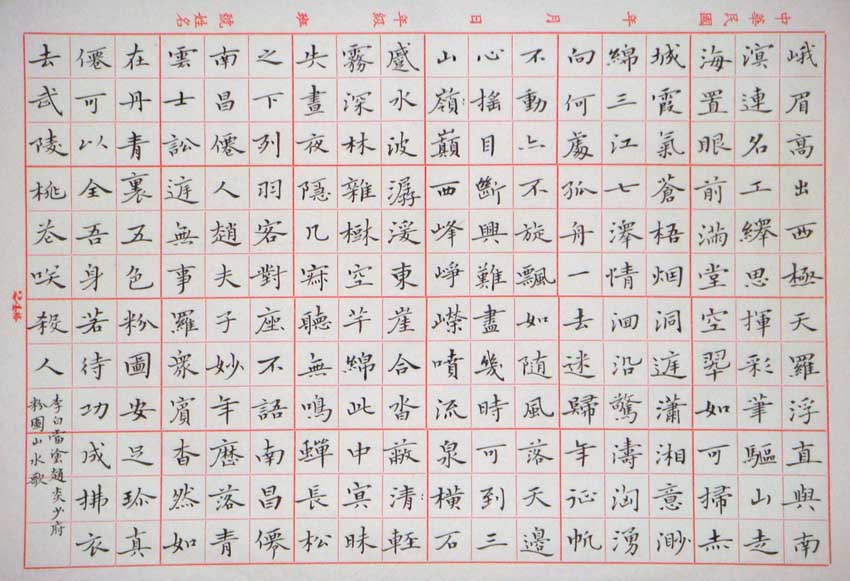 中華民國 年 月 日 年級 班 姓名 號
峨眉高出西極天羅浮直與南
溟連名工繹思揮彩筆驅山走
海置眼前滿堂空翠如可掃赤
城霞氣蒼梧烟洞庭瀟湘意渺
綿三江七澤情洄沿驚濤洶湧
向何處孤舟一去迷歸年征帆
不動亦不旋飄如随風落天邊
心搖目斷興難盡幾時可到三
山嶺巔西峰崢嶸噴流泉橫石
蹙水波潺湲東崖合沓蔽清輕
霧深林雜樹空芊綿此中冥昧
失晝夜隱几寂聽無鳴蟬長松
之下列羽客對座不語南昌僊
南昌僊人趙夫子妙年歷落青
雲士訟庭無事羅衆賓杳然如
在丹青裏五色粉圖安足珍真
僊可以全吾身若待功成拂衣
去武陵桃花笑殺人
李白當塗趙炎少府
粉圖山水歌